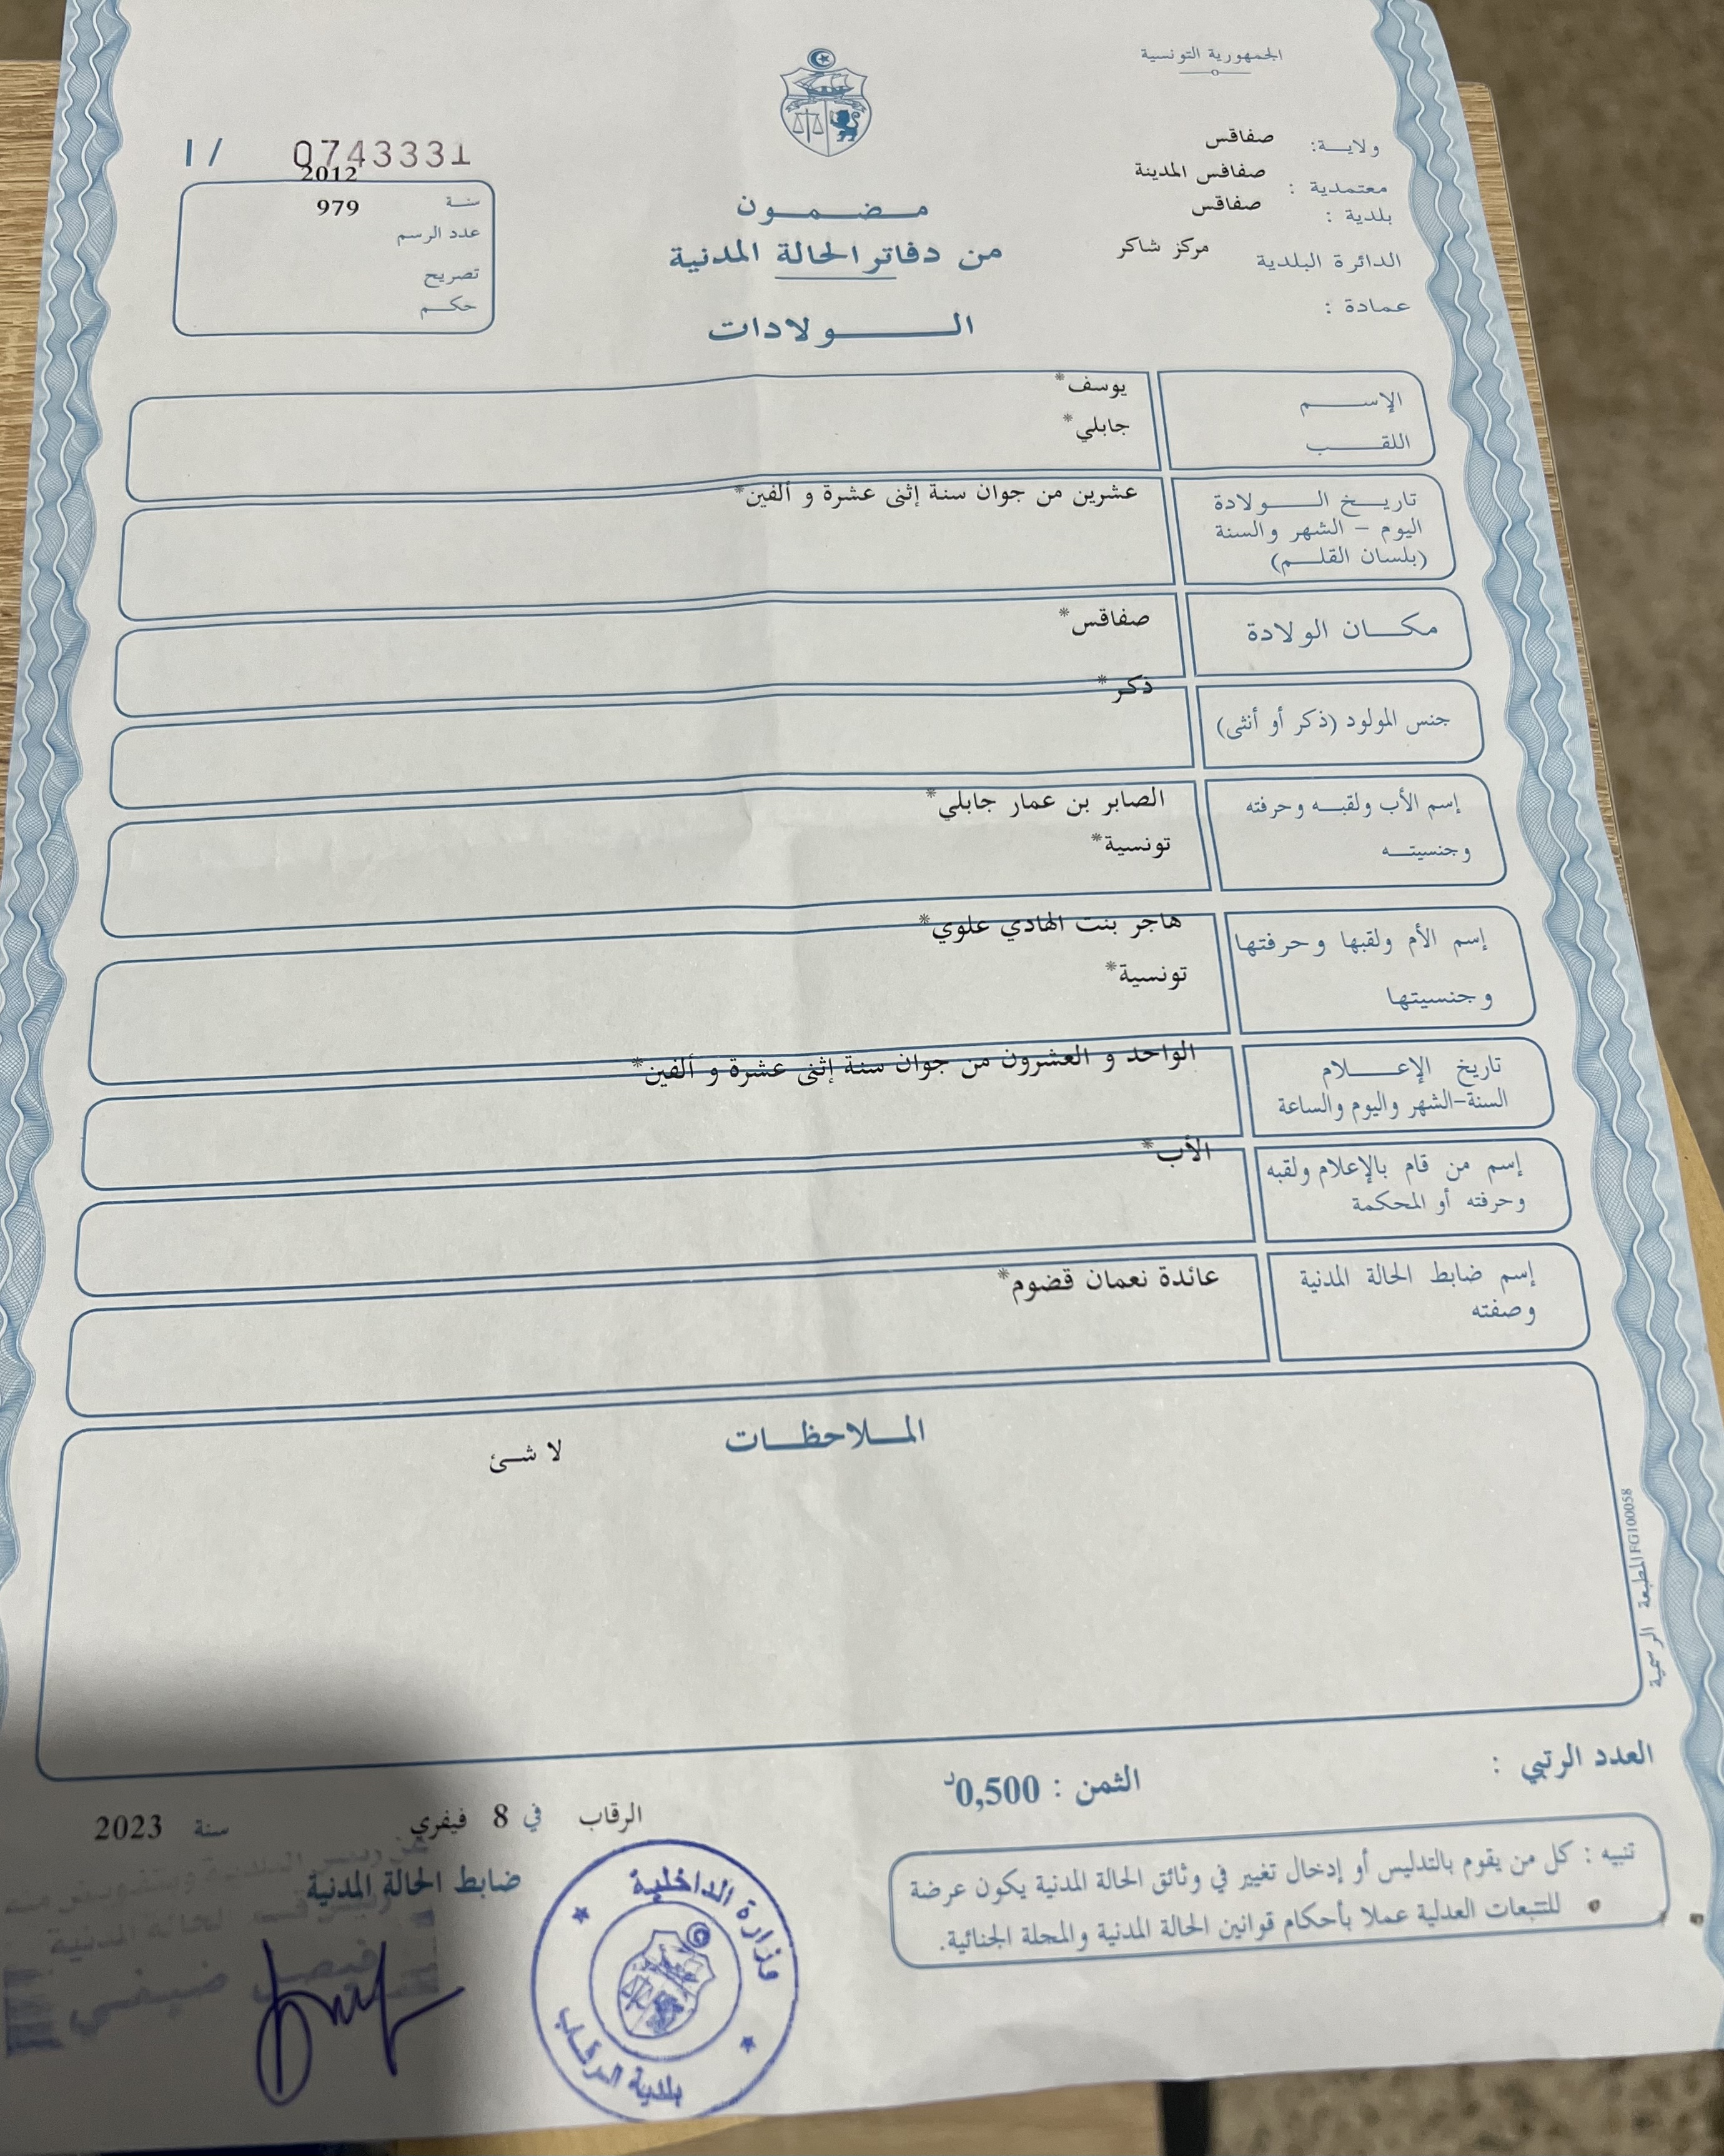 الجمهورية التونسية
ولاية: صفاقس
معتمدية : صفاقس المدينة
بلدية : صفاقس
الدائرة البلدية مركز شاكر
عمادة :
مضمون
من دفاتر الحالة المدنية
الولادات
I / 0743331
سنة 2012
عدد الرسم 979
تصريح
حكم
الإسم يوسف*
اللقب جابلي*
تاريخ الولادة عشرين من جوان سنة إثنى عشرة و ألفين*
اليوم - الشهر والسنة
(بلسان القلم)
مكان الولادة صفاقس*
جنس المولود (ذكر أو أنثى) ذكر*
إسم الأب ولقبه وحرفته الصابر بن عمار جابلي*
وجنسيته تونسية*
إسم الأم ولقبها وحرفتها هاجر بنت الهادي علوي*
وجنسيتها تونسية*
تاريخ الإعلام الواحد و العشرون من جوان سنة إثنى عشرة و ألفين*
السنة-الشهر واليوم والساعة
إسم من قام بالإعلام ولقبه الأب*
وحرفته أو المحكمة
إسم ضابط الحالة المدنية عائدة نعمان قضوم*
وصفته
الملاحظات
لا شئ
المطبعة الرسمية FG100058
العدد الرتبي :
الثمن : 0,500د
الرقاب في 8 فيفري سنة 2023
ضابط الحالة المدنية
عن رئيس البلدية وبتفويض منه
رئيس قسم الحالة المدنية
فيصل ضيفي
وزارة الداخلية
بلدية الرقاب
تنبيه : كل من يقوم بالتدليس أو إدخال تغيير في وثائق الحالة المدنية يكون عرضة
للتتبعات العدلية عملا بأحكام قوانين الحالة المدنية والمجلة الجنائية.